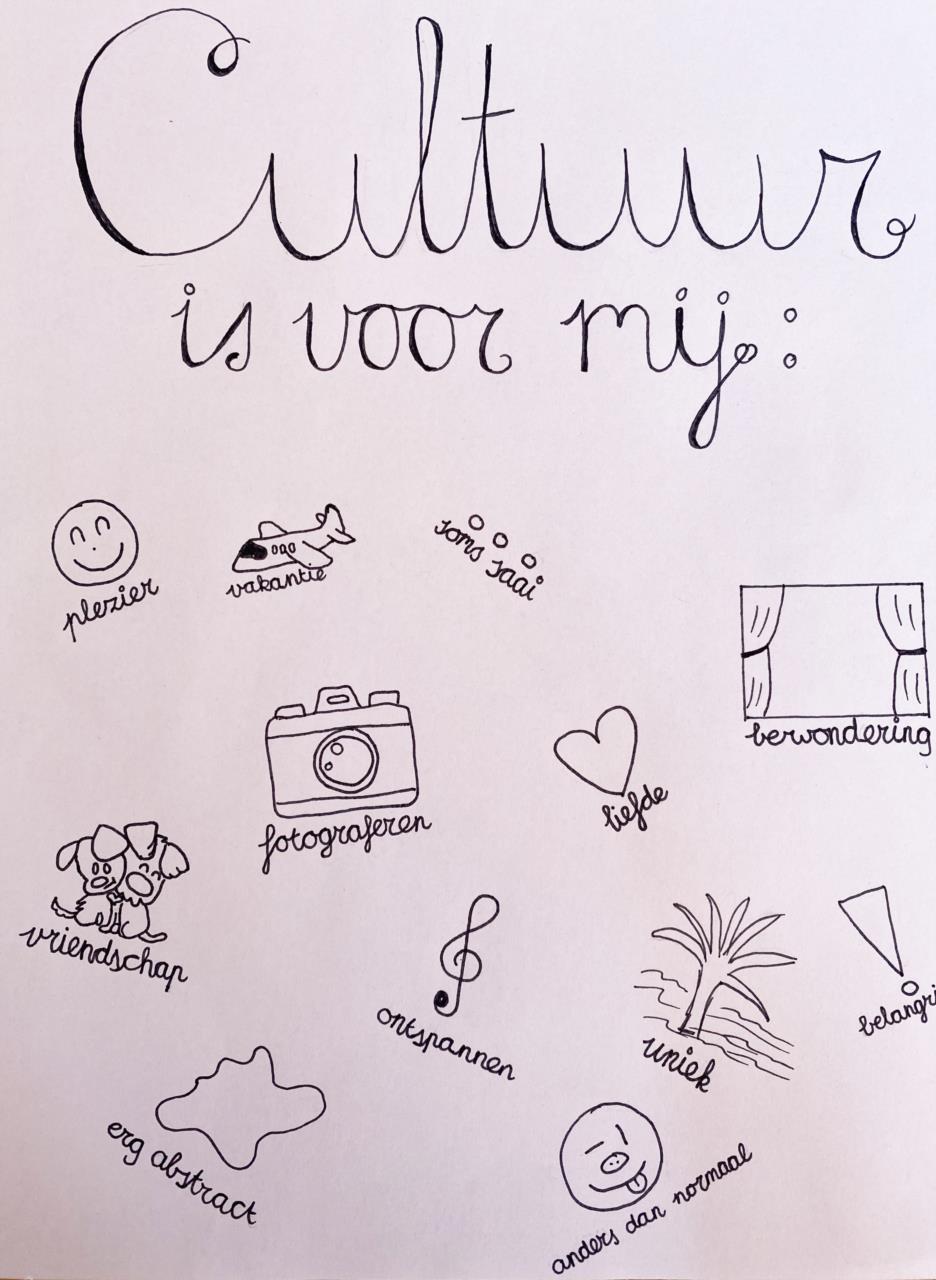 Cultuur
is voor mij:
plezier
vakantie
soms saai
berwondering
fotograferen
liefde
vriendschap
ontspannen
uniek
belangri
erg abstract
anders dan normaal